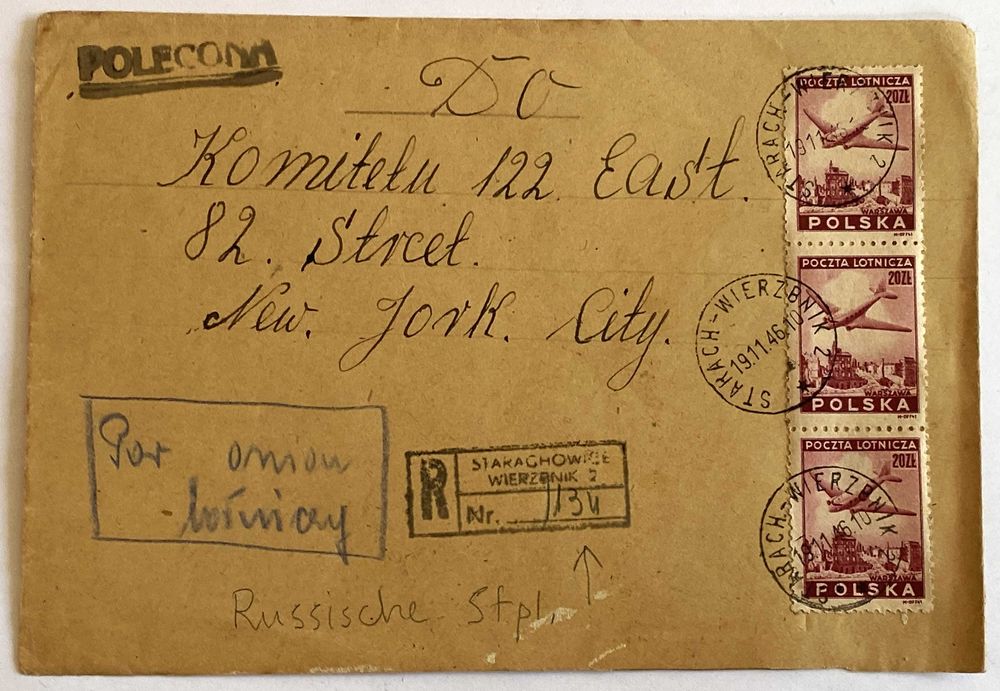 POLECONA
Do
Komitetu 122 East.
82. Street.
New. Jork. City.
Par avion
lotniczy
R
STARACHOWICE
WIERZBNIK 2
Nr. 1134
Russische Stpl.
POCZTA LOTNICZA
20ZŁ
WARSZAWA
POLSKA
STARACH-WIERZBNIK 2
19.11.46
POCZTA LOTNICZA
20ZŁ
WARSZAWA
POLSKA
STARACH-WIERZBNIK 2
19.11.46.10
POCZTA LOTNICZA
20ZŁ
WARSZAWA
POLSKA
STARACH-WIERZBNIK 2
19.11.46.10